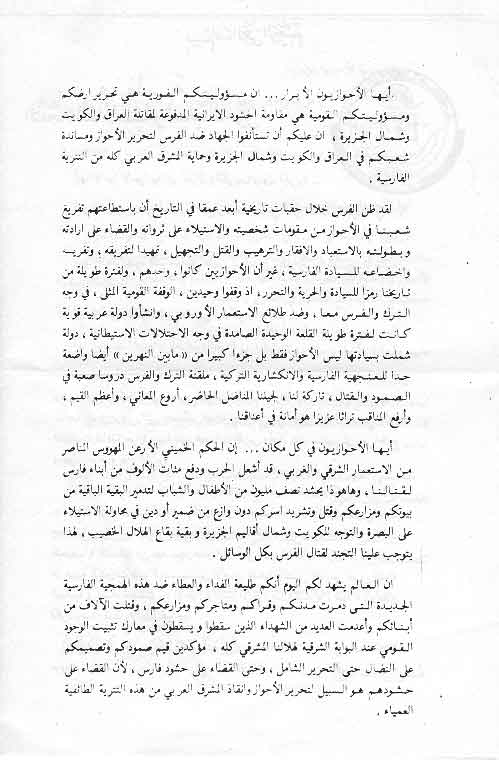 أيـها الأحـوازيـون الأبـرار ... ان مـسـؤولـيـتـكـم الـفـوريـة هـي تحريـر ارضكم
ومـسـؤولـيـتـكـم القومية هي مقاومة الحشود الايرانية المدفوعة لمقاتلة العراق والكويت
وشـمـال الجـزيـرة ، ان عليكم أن تستأنفوا الجهاد ضد الفرس لتحرير الأحواز ومساندة
شـعـبـكـم في الـعراق والكويت وشمال الجزيرة وحماية المشرق العربي كله من التتـرية
الفارسية .
لقد ظن الفرس خلال حقبات تاريخية أبعد عمقا في التاريخ أن باستطاعتهم تفريغ
شـعـبـنـا في الأحـواز مـن مقومات شخصيته والاستيلاء على ثرواته والقضاء على ارادته
و بـطـولـتـه بالاستعباد والافقار والترهيب والقتل والتجهيل ، تمهيدا لتفريقه ، وتغريبه
واخـضـاعـه للـسـيـادة الفارسية ، غير أن الأحوازيين كانوا ، وحدهم ، ولفترة طويلة من
تـاريـخـنـا رمـزا للسيادة والحرية والتحرر، اذ وقفوا وحيدين ، الوقفة القومية المثلى ، في وجه
الـتـرك والـفـرس مـعـا ، وضد طلائع الاستعمار الأوروبي ، وانشأوا دولة عربية قوية
كـانـت لـفـتـرة طـويـلـة القلعة الوحيدة الصامدة في وجه الاحتلالات الاستيطانية ، دولة
شملت بسيادتها ليس الأحواز فقط بل جزءا كبيرا من «مابين النهرين» أيضا واضعة
حـدا للـعـنـجـهـية الفارسية والانكشارية التركية ، ملقنة الترك والفرس دروسا صعبة في
الـصـمـود والـقـتـال ، تاركة لنا ، لجيلنا المناضل الحاضر، أروع المعاني ، وأعظم القيم ،
وأرفع المناقب تراثا عزيزا هو أمانة في أعناقنا .
أيـهـا الأحـوازيـون في كل مـكان ... إن الحكم الخميني الأرعن المهووس الناصر
مـن الاستعمار الشرقي والغربي ، قد أشعل الحرب ودفع مئات الألوف من أبناء فارس
لـقـتـالـنـا ، وهاهوذا يحشد نصف مليون من الأطفال والشباب لتدمير البقية الباقية من
بيوتكم ومزارعكم وقتل وتشريد اسركم دون وازع من ضمير أو دين في محاولة الاستيلاء
على البصرة والتوجه للكويت وشمال أقاليم الجزيرة و بقية بقاع الهلال الخصيب ، لهذا
يتوجب علينا التجند لقتال الفرس بكل الوسائل .
ان الـعـالـم يشهد لكم اليوم أنكم طليعة الفداء والعطاء ضد هذه الهمجية الفارسية
الجـديـدة الـتـي دمـرت مـدنـكـم وقـراكـم ومتاجركم ومزارعكم ، وقتلت الآلاف من
أبـنـائـكم وأعدمت العديد من الشهداء الذين سقطوا و يسقطون في معارك تثبيت الوجود
القـومـي عند البوابة الشرقية لهلالنا المشرقي كله ، مؤكدين قيم صمودكم وتصميمكم
على الـنـضـال حتى التحرير الشامل ، وحتى القضاء على حشود فارس ، لأن القضاء على
حـشـودهـم هـو الـسـبيل لتحرير الأحواز وانقاذ المشرق العربي من هذه التترية الطائفية
العمياء .